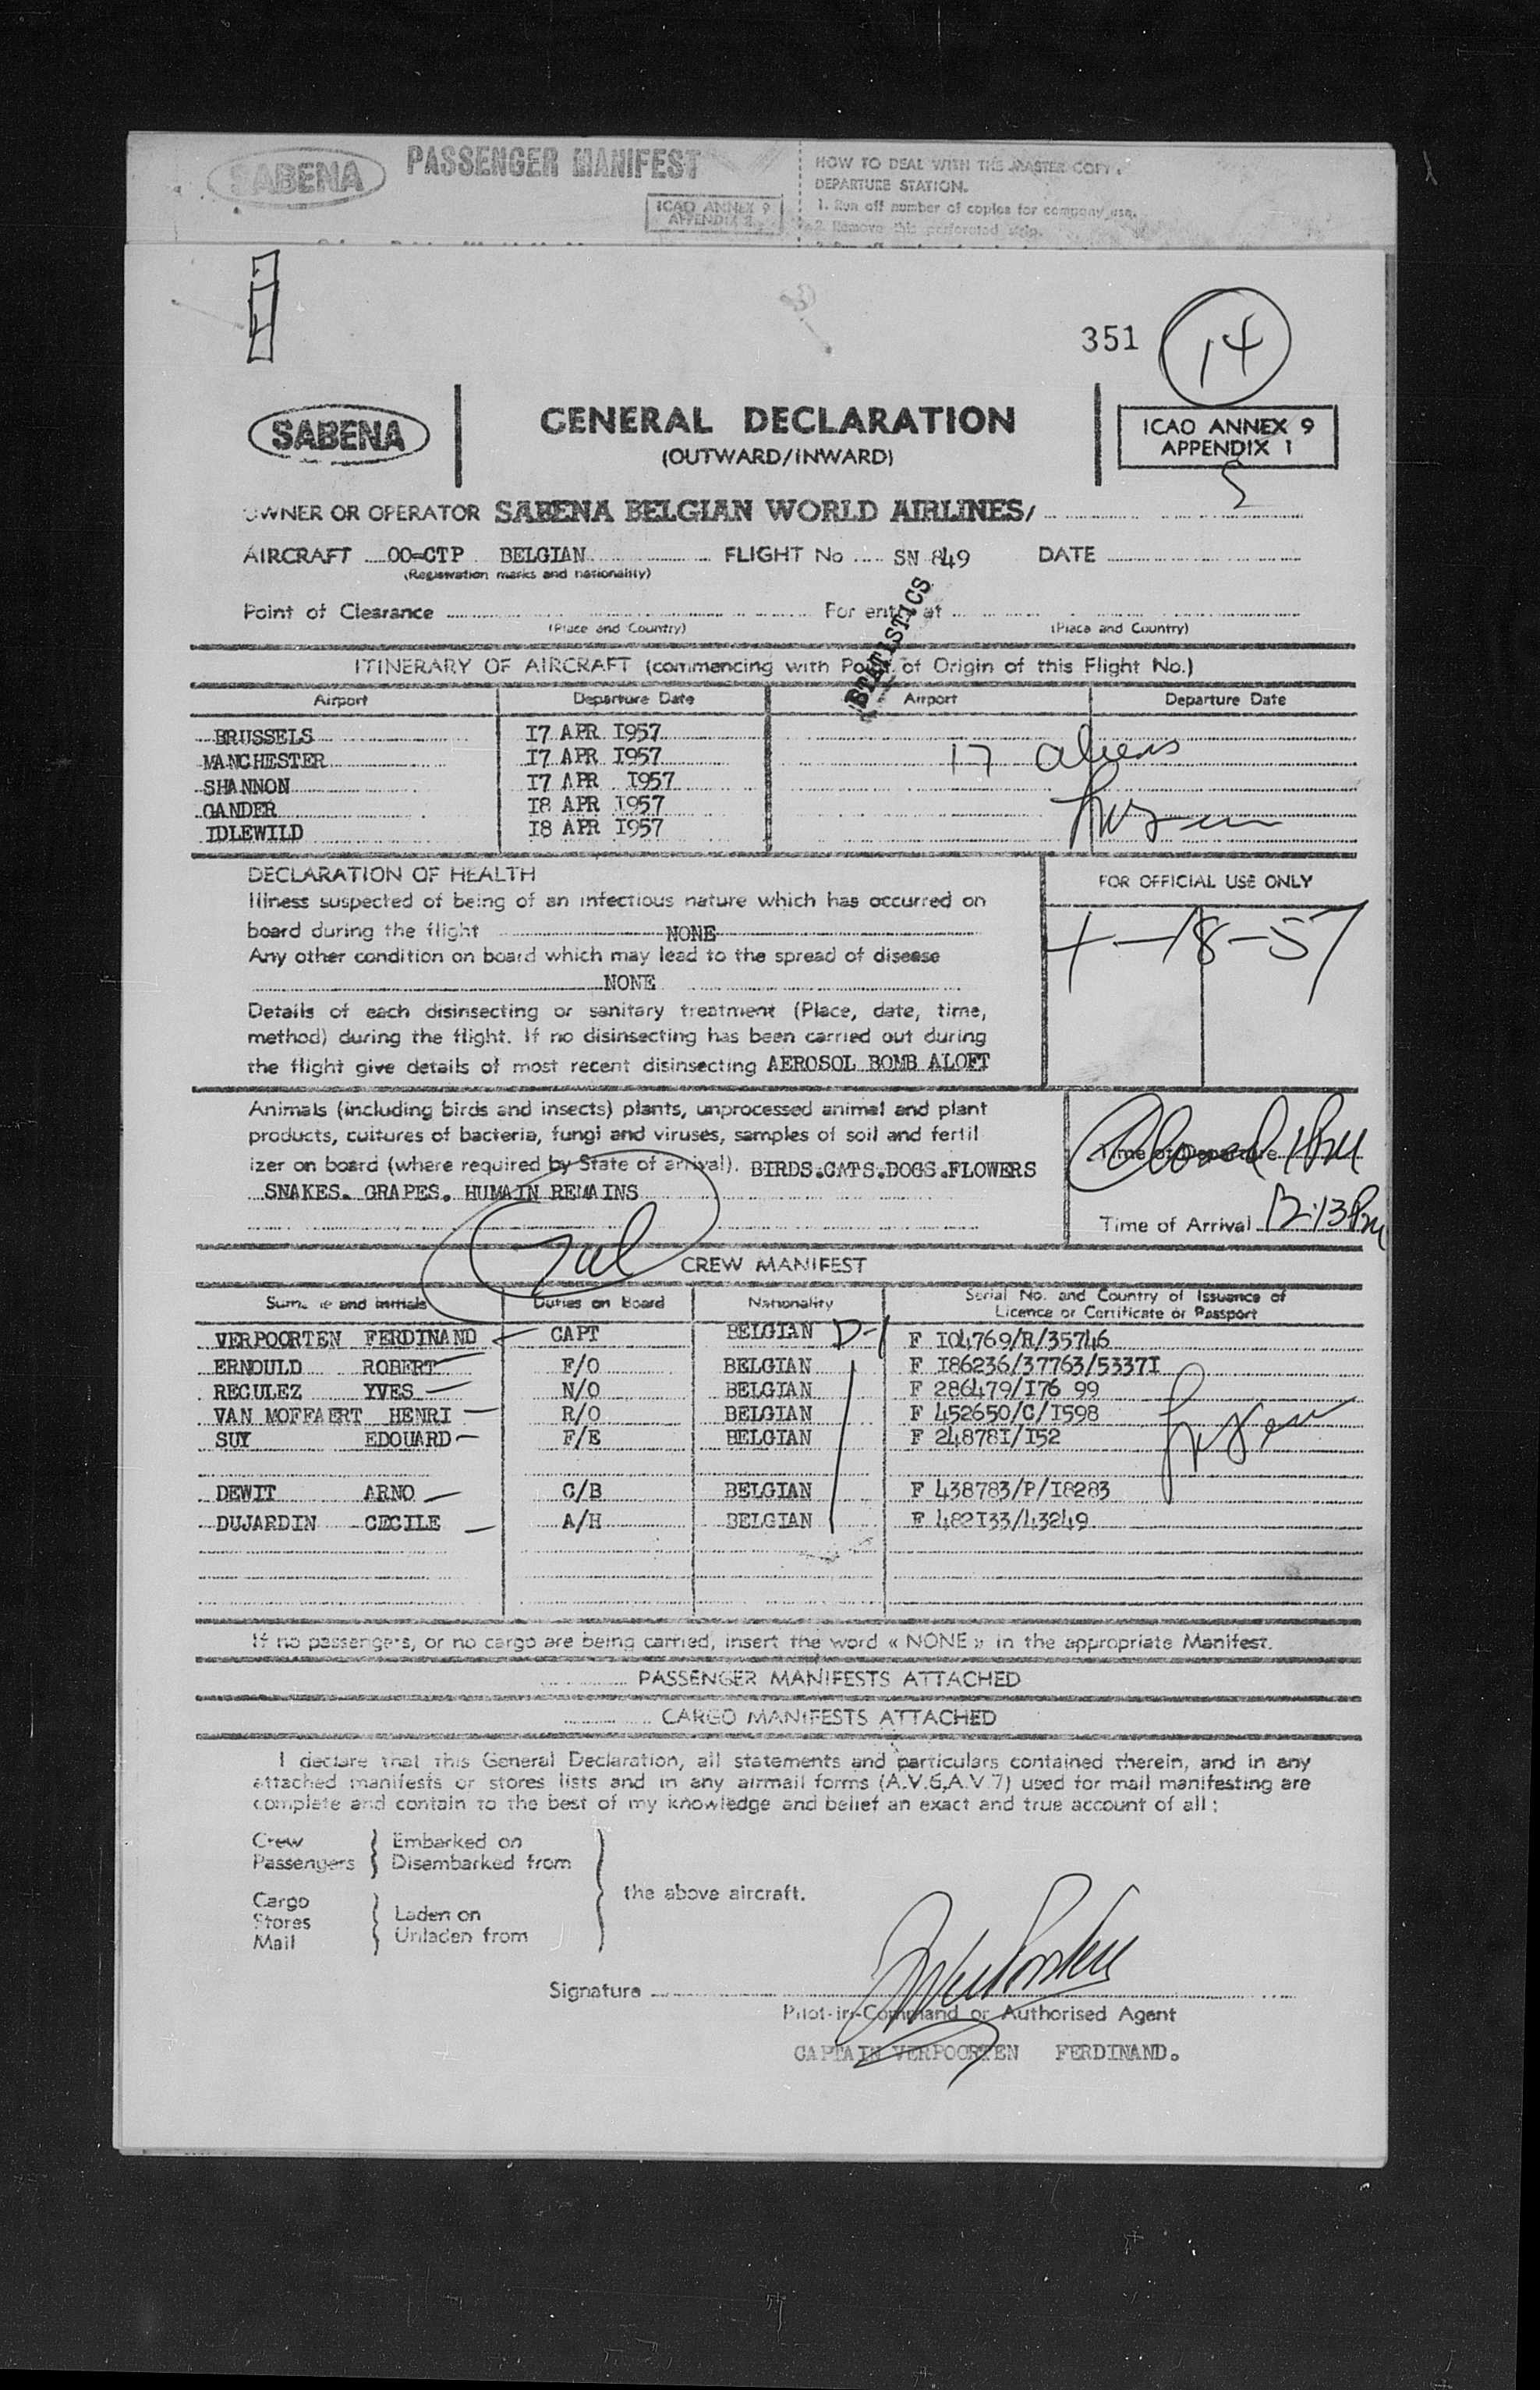 SABENA PASSENGER MANIFEST
ICAO ANNEX 9
APPENDIX 2
HOW TO DEAL WITH THE MASTER COPY.
DEPARTURE STATION.
1. Run off number of copies for company use.
2. Remove this perforated strip.
351 14
SABENA
GENERAL DECLARATION
(OUTWARD/INWARD)
ICAO ANNEX 9
APPENDIX 1
OWNER OR OPERATOR SABENA BELGIAN WORLD AIRLINES/
AIRCRAFT OO=CTP BELGIAN FLIGHT No SN 849 DATE
(Registration marks and nationality)
Point of Clearance For entry at
(Place and Country) (Place and Country)
STATISTICS
ITINERARY OF AIRCRAFT (commencing with Point of Origin of this Flight No.)
Airport Departure Date Airport Departure Date
BRUSSELS I7 APR I957
MANCHESTER I7 APR I957 17 aliens
SHANNON I7 APR I957
GANDER I8 APR I957
IDLEWILD I8 APR I957
DECLARATION OF HEALTH
Illness suspected of being of an infectious nature which has occurred on
board during the flight NONE
Any other condition on board which may lead to the spread of disease
NONE
Details of each disinsecting or sanitary treatment (Place, date, time,
method) during the flight. If no disinsecting has been carried out during
the flight give details of most recent disinsecting AEROSOL BOMB ALOFT
FOR OFFICIAL USE ONLY
4-18-57
Animals (including birds and insects) plants, unprocessed animal and plant
products, cultures of bacteria, fungi and viruses, samples of soil and fertil
izer on board (where required by State of arrival). BIRDS.CATS.DOGS.FLOWERS
SNAKES. GRAPES. HUMAIN REMAINS
Time of Departure
Time of Arrival 12:13 PM
CREW MANIFEST
Surname and initials Duties on Board Nationality Serial No. and Country of Issuance of
Licence or Certificate or Passport
VERPOORTEN FERDINAND CAPT BELGIAN D-1 F I04769/R/35746
ERNOULD ROBERT F/O BELGIAN F I86236/37763/5337I
RECULEZ YVES N/O BELGIAN F 286479/I76 99
VAN MOFFAERT HENRI R/O BELGIAN F 452650/C/I598
SUY EDOUARD F/E BELGIAN F 24878I/I52
DEWIT ARNO C/B BELGIAN F 438783/P/I8283
DUJARDIN CECILE A/H BELGIAN F 482I33/43249
If no passengers, or no cargo are being carried, insert the word « NONE » in the appropriate Manifest.
PASSENGER MANIFESTS ATTACHED
CARGO MANIFESTS ATTACHED
I declare that this General Declaration, all statements and particulars contained therein, and in any
attached manifests or stores lists and in any airmail forms (A.V.6,A.V.7) used for mail manifesting are
complete and contain to the best of my knowledge and belief an exact and true account of all :
Crew Embarked on
Passengers Disembarked from
the above aircraft.
Cargo
Stores Laden on
Mail Unladen from
Signature
Pilot-in-Command or Authorised Agent
CAPTAIN VERPOORTEN FERDINAND.